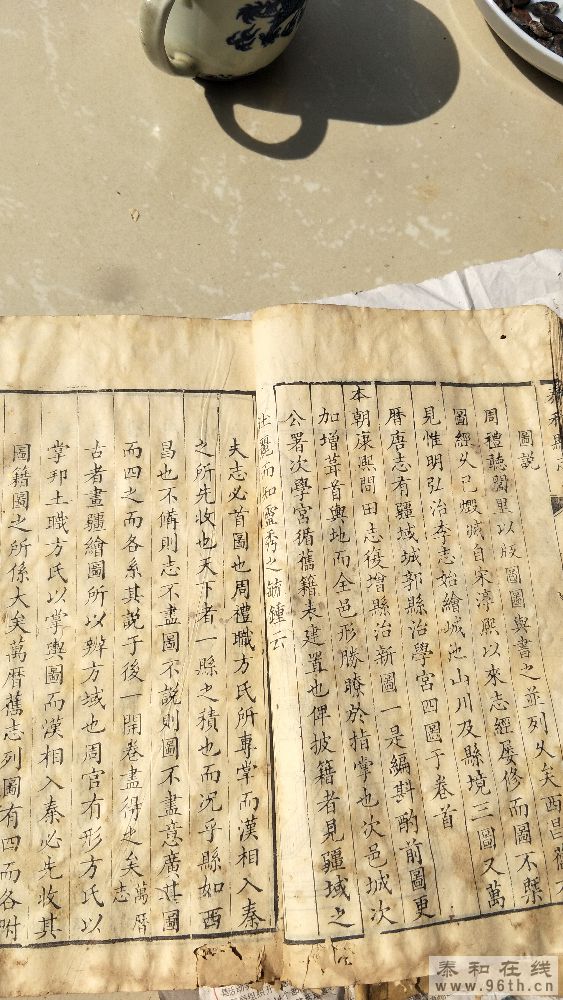 圖說
周禮聽閭里以版圖圖與書之並列久矣西昌舊
圖經久已燬滅自宋淳熙以來志經屢修而圖不槩
見惟明弘治李志始繪城池山川及縣境三圖又萬
曆唐志有疆域城郭縣治學宮四圖于卷首
本朝康熙間田志復增縣治新圖一是編斟酌前圖更
加增葺首輿地而全邑形勝瞭於指掌也次邑城次
公署次學宮循舊籍表建置也俾披籍者見疆域之
壯麗而知靈秀之鍾云
夫志必首圖也周禮職方氏所專掌而漢相入秦
之所先收也天下者一縣之積也而況乎縣如西
昌也不備則志不盡圖不說則圖不盡意廣其圖
而四之而各系其說于後一開卷盡得之矣萬曆志
古者畫疆繪圖所以辨方域也周官有形方氏以
掌邦土職方氏以掌輿圖而漢相入秦必先收其
圖籍圖之所係大矣萬曆舊志列圖有四而各附
泰和在线
www.96th.cn